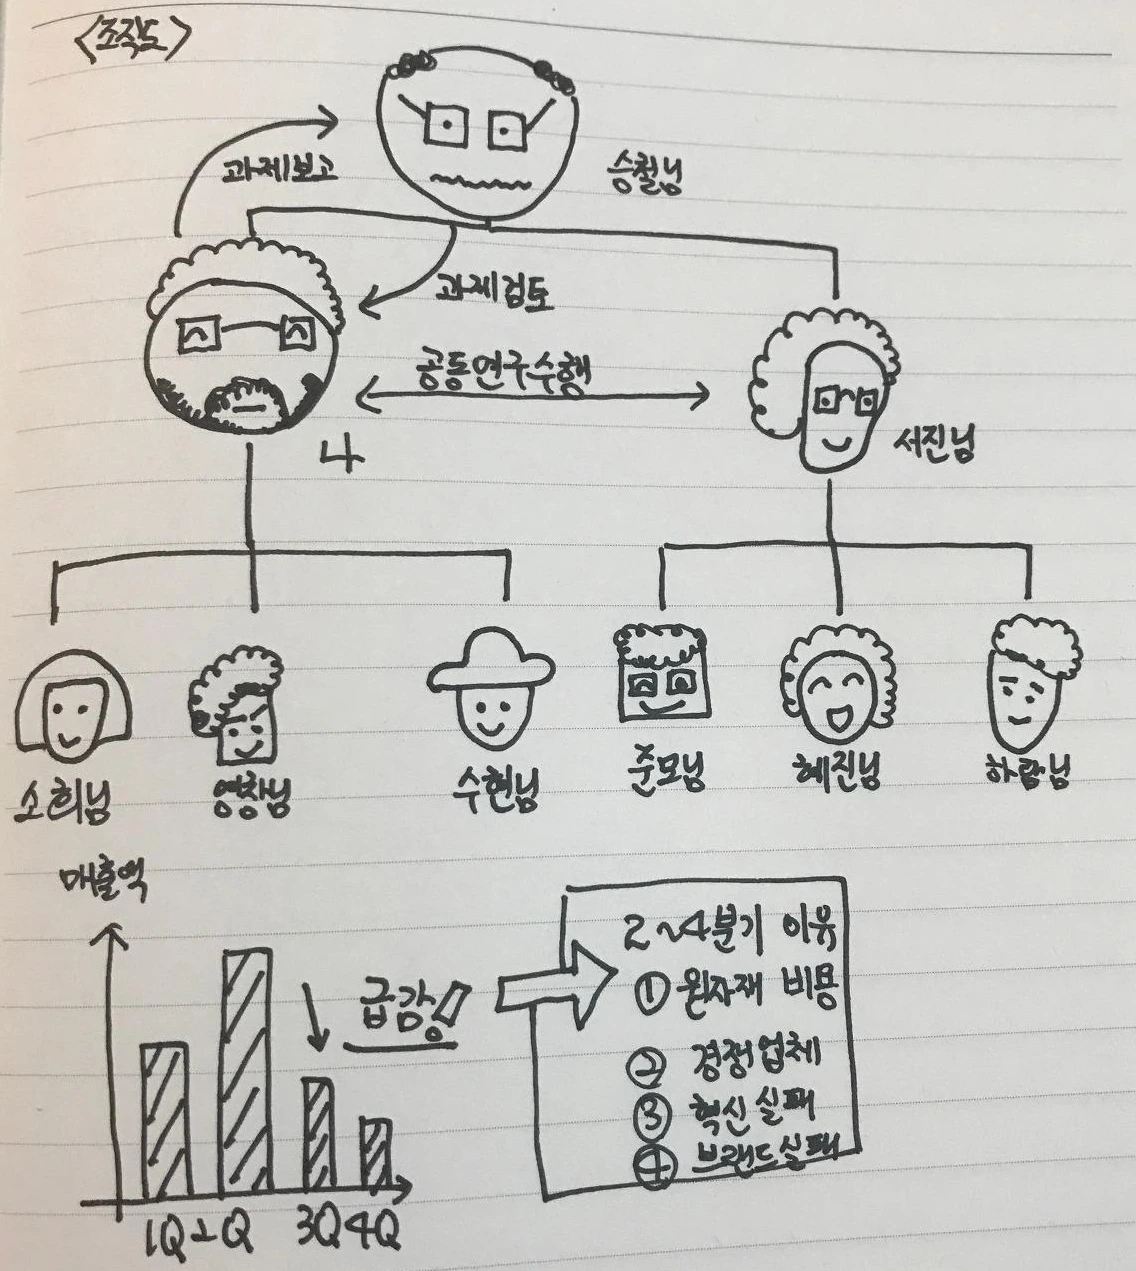 <조직도>
과제보고
승철님
과제검토
공동연구수행
나
서진님
소희님
영창님
수현님
준모님
혜진님
하람님
매출액
급감!
2~4분기 이유
① 원자재 비용
② 경쟁업체
③ 혁신실패
④ 브랜드실패
1Q 2Q 3Q 4Q